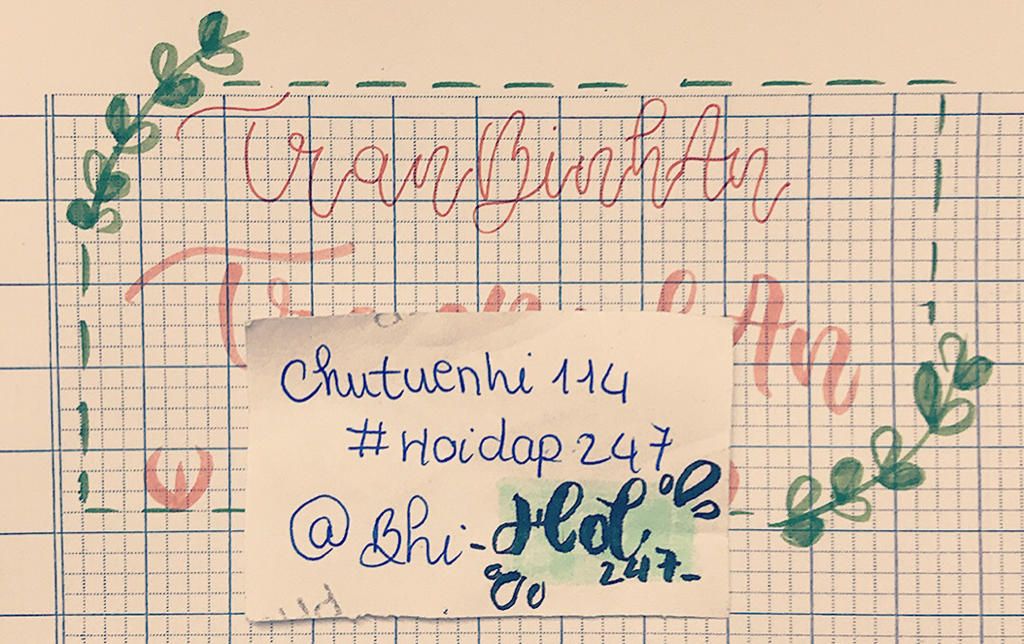 Tran Binh An
An
chutuenhi 114
#Hoidap 247
@Bhi-
Hoi
247-